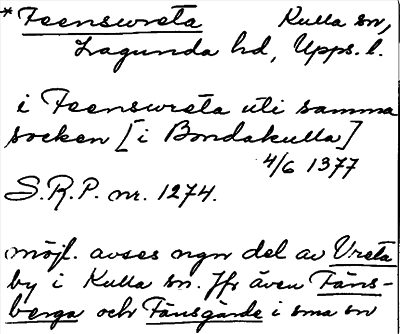 *Feenswreta Kulla sn,
Lagunda hd, Upps. l.
i Feenswreta uti samma
socken [i Bondakulla]
4/6 1377
S.R.P. nr. 1274.
möjl. avses ngn del av Vreta
by i Kulla sn. Jfr även Fäns-
berga och Fänsgärde i sma sn